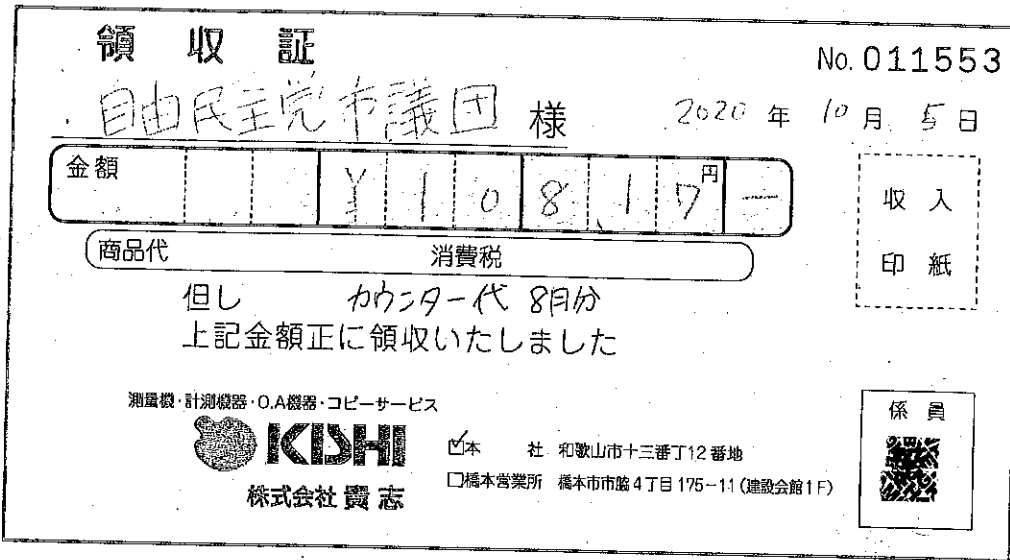 領収証
No. 011553
自由民主党市議団 様
2020 年 10 月 5 日
金額 ¥10817円-
収入
印紙
商品代 消費税
但し カウンター代 8月分
上記金額正に領収いたしました
測量機・計測機器・O.A機器・コピーサービス
KISHI
株式会社 貴志
☑本 社 和歌山市十三番丁12番地
☐橋本営業所 橋本市市脇4丁目175-11(建設会館1F)
係員